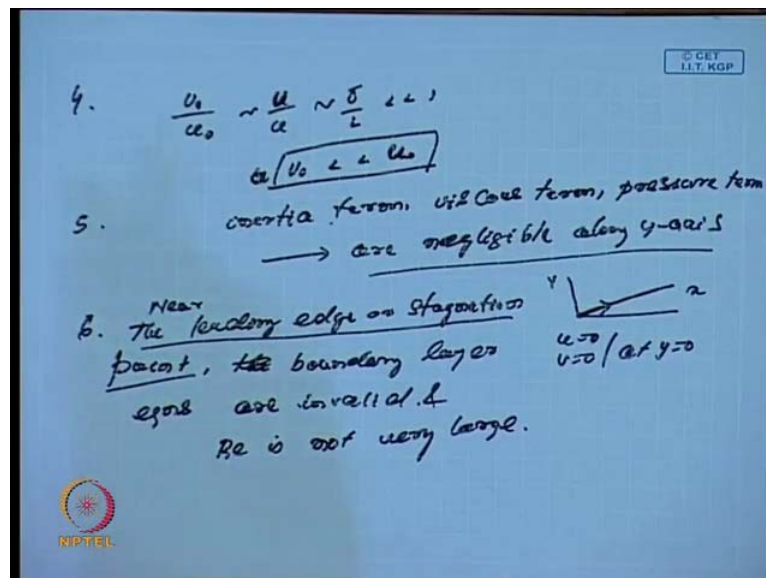 © CET
I.I.T. KGP
4. v₀/u₀ ~ u/u ~ δ/L < < 1
v₀ < < u₀
5. inertia term, viscous term, pressure term
→ are negligible along y-axis
6. Near
The leading edge or stagnation
point, the boundary layer
eqns are invalid &
Re is not very large.
y x
u=0
v=0 / at y=0
NPTEL